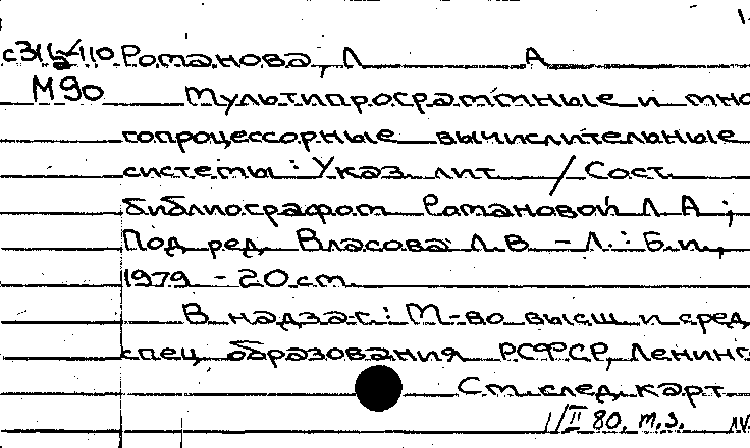 Романова, Л А
М90 Мультипрограммные и мно
гопроцессорные вычислительные
системы : Указ. лит. / Сост.
библиографом Романовой Л. А ;
Под ред. Власова Л.В. - Л. : Б.и.,
1979 - 20 см.
В надзаг.: М-во высш и сред
спец образования РСФСР, Ленинг
См.след.карт
1/II 80. т.з.